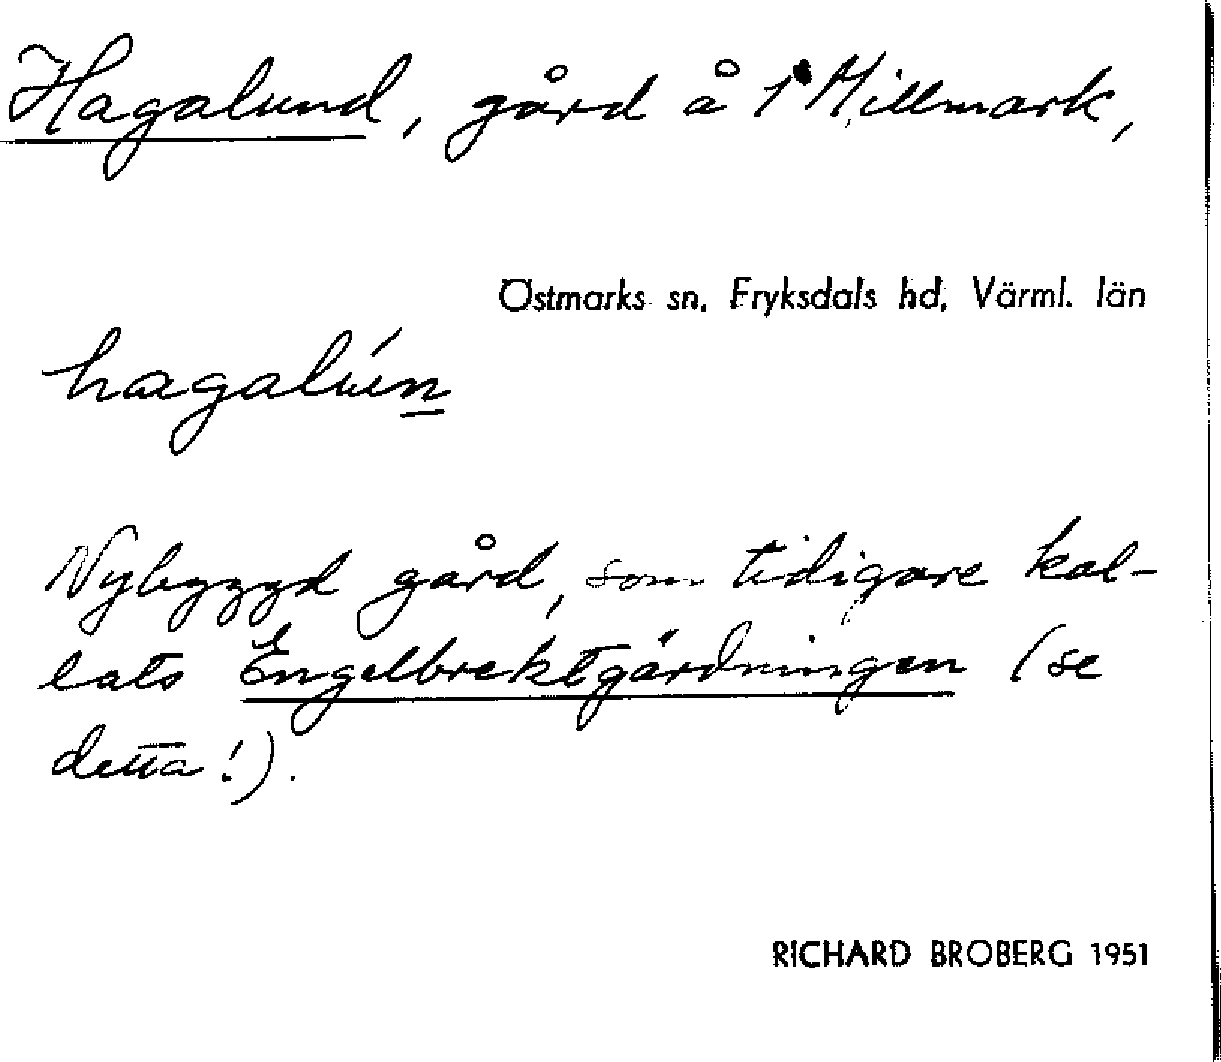 Hagalund, gård å 1 Millmark,
Östmarks sn, Fryksdals hd, Värml. län
hagalún
Nybyggd gård, som tidigare kal-
lats Engelbrektgärdningen (se
detta!).
RICHARD BROBERG 1951